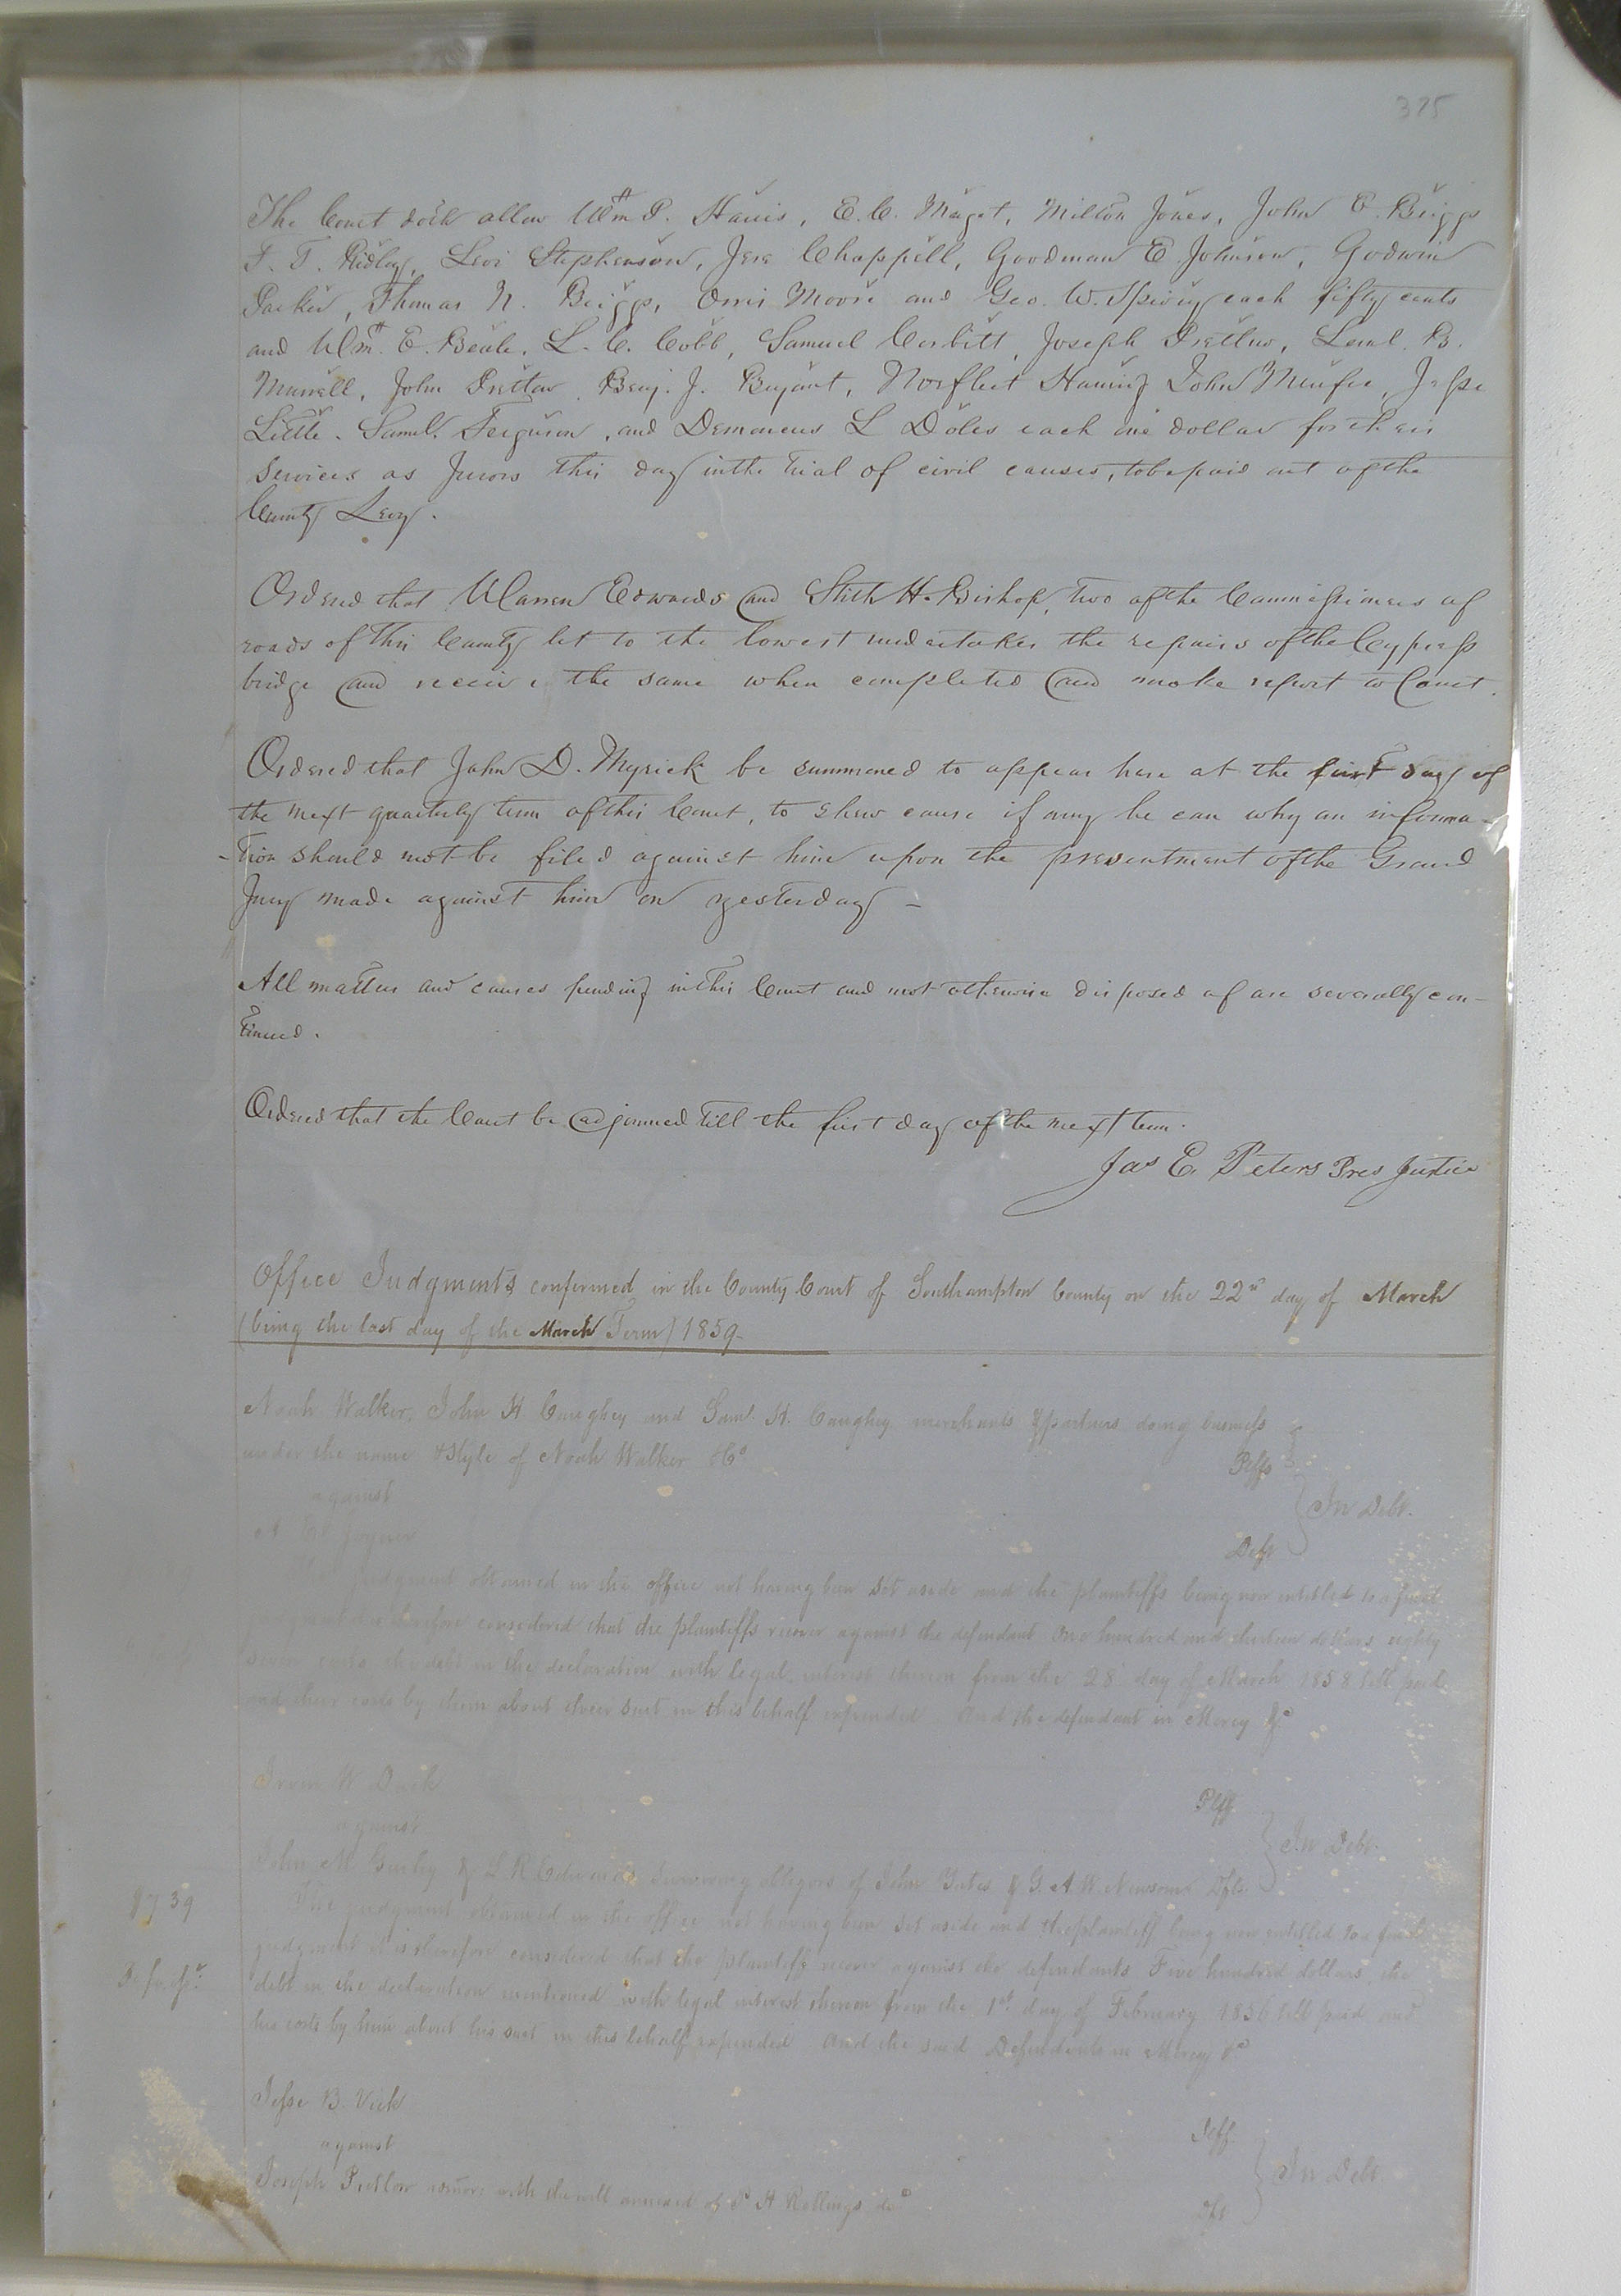 375
The Court doth allow Wm P. Harris, E. C. Maget, Milton Jones, John E. Briggs
F. T. Ridley, Levi Stephenson, Jere Chappell, Goodman E Johnson, Godwin
Parker, Thomas N. Briggs, Orris Moore and Geo. W. Spivey each fifty cents
and Wm. E. Beale, L. C. Cobb, Samuel Corbitt, Joseph Pretlow, Leml. B.
Murrell, John Pretlow, Benj. J. Bryant, Norfleet Harris John Minfee, Jesse
Little, Saml. Ferguson, and Demarcus L Doles each one dollar for their
services as Jurors this day in the trial of civil causes, to be paid out of the
County Levy.
Ordered that Warren Edwards and Stith H. Bishop, two of the Commissioners of
roads of this County let to the lowest undertaker the repairs of the Cypress
bridge and receive the same when completed and make report to Court.
Ordered that John D. Myrick be summoned to appear here at the first day of
the next quarterly term of this Court, to shew cause if any he can why an informa-
-tion should not be filed against him upon the presentment of the Grand
Jury made against him on yesterday -
All matters and causes pending in this Court and not otherwise disposed of are severally con-
tinued.
Ordered that the Court be adjourned till the first day of the next term.
Jas E. Peters Pres Justice
Office Judgments confirmed in the County Court of Southampton County on the 22nd day of March
(being the last day of the March Term) 1859-
Noah Walker, John H. Caughey and Saml. H. Caughey merchants & partners doing business
under the name & Style of Noah Walker & Co Plffs
against
In Debt.
Joyner Deft
judgment obtained in the office not having been set aside and the plaintiffs being now entitled to a final
judgment it is therefore considered that the plaintiffs recover against the defendant One hundred and thirteen dollars eighty
seven cents the debt in the declaration with legal interest thereon from the 28 day of March 1858 till paid
and their costs by them about their suit in this behalf expended And the defendant in Mercy &c
W. Duck Plff
against
In Debt.
John M Gurley & L R Edwards Surviving obligors of John Yates & G. A. W. Newsom Dfts
The judgment obtained in the office not having been set aside and the plaintiff being now entitled to a final
judgment it is therefore considered that the plaintiff recover against the defendants Five hundred dollars, the
debt in the declaration mentioned with legal interest thereon from the 1st day of February 1856 till paid and
his costs by him about his suit in this behalf expended And the said Defendants in Mercy &c
87 39
Jesse B. Vick Plff
against
In Debt.
Joseph Pretlow admor with the will annexed of P. H. Rollings decd Dft